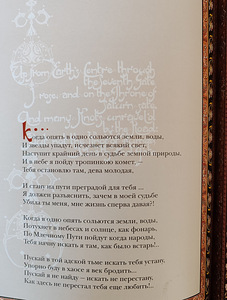 Up from Earth's Centre through
the seventh gate
I rose, and on the Throne of
Saturn sate,
And many Knots unravel'd
* * *
Когда опять в одно сольются земли, воды,
И звезды упадут, исчезнет всякий свет,
Наступит крайний день в судьбе земной природы,
И в небе я пойду тропинкою комет, —
Тебя остановлю там, дева молодая,
И стану на пути преградой для тебя ...
Я должен разъяснить, зачем в моей судьбе
Убила ты меня, мне жизнь сперва давая?!
Когда в одно опять сольются земли, воды,
Потухнет в небесах и солнце, как фонарь,
По Млечному Пути пойдут когда народы,
Тебя начну искать я там, как было встарь!..
Пускай в той адской тьме искать тебя устану,
Упорно буду в хаосе я век бродить...
Пускай я не найду — искать не перестану,
Как здесь не перестал тебя еще любить!..